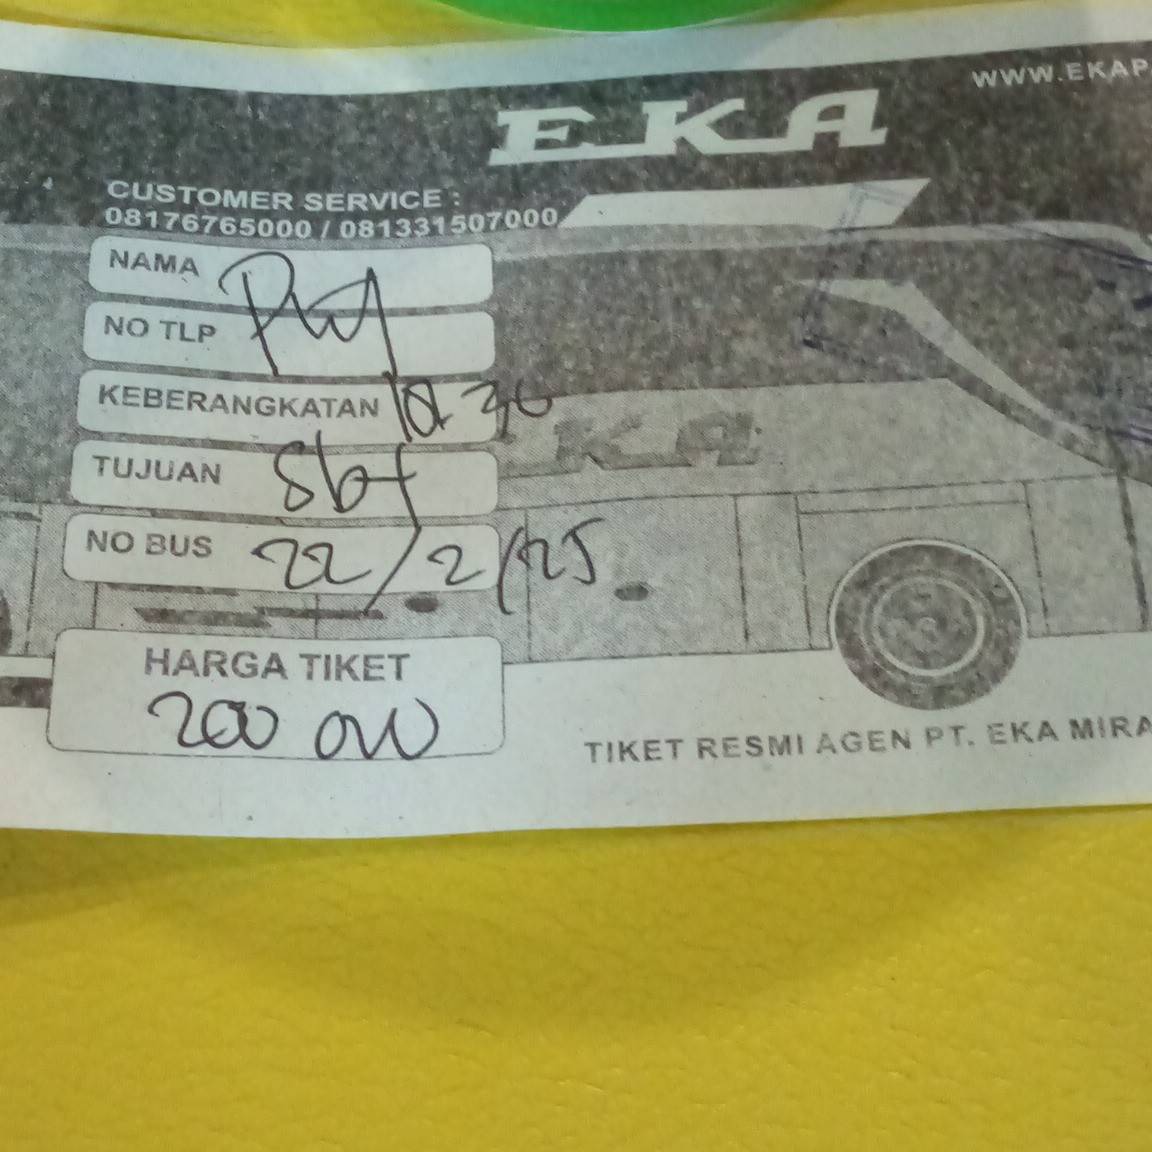 WWW.EKAP
EKA
CUSTOMER SERVICE :
08176765000 / 081331507000
NAMA
NO TLP
KEBERANGKATAN
TUJUAN Sby
NO BUS 22/2/25
EKA
HARGA TIKET
200 000
TIKET RESMI AGEN PT. EKA MIRA